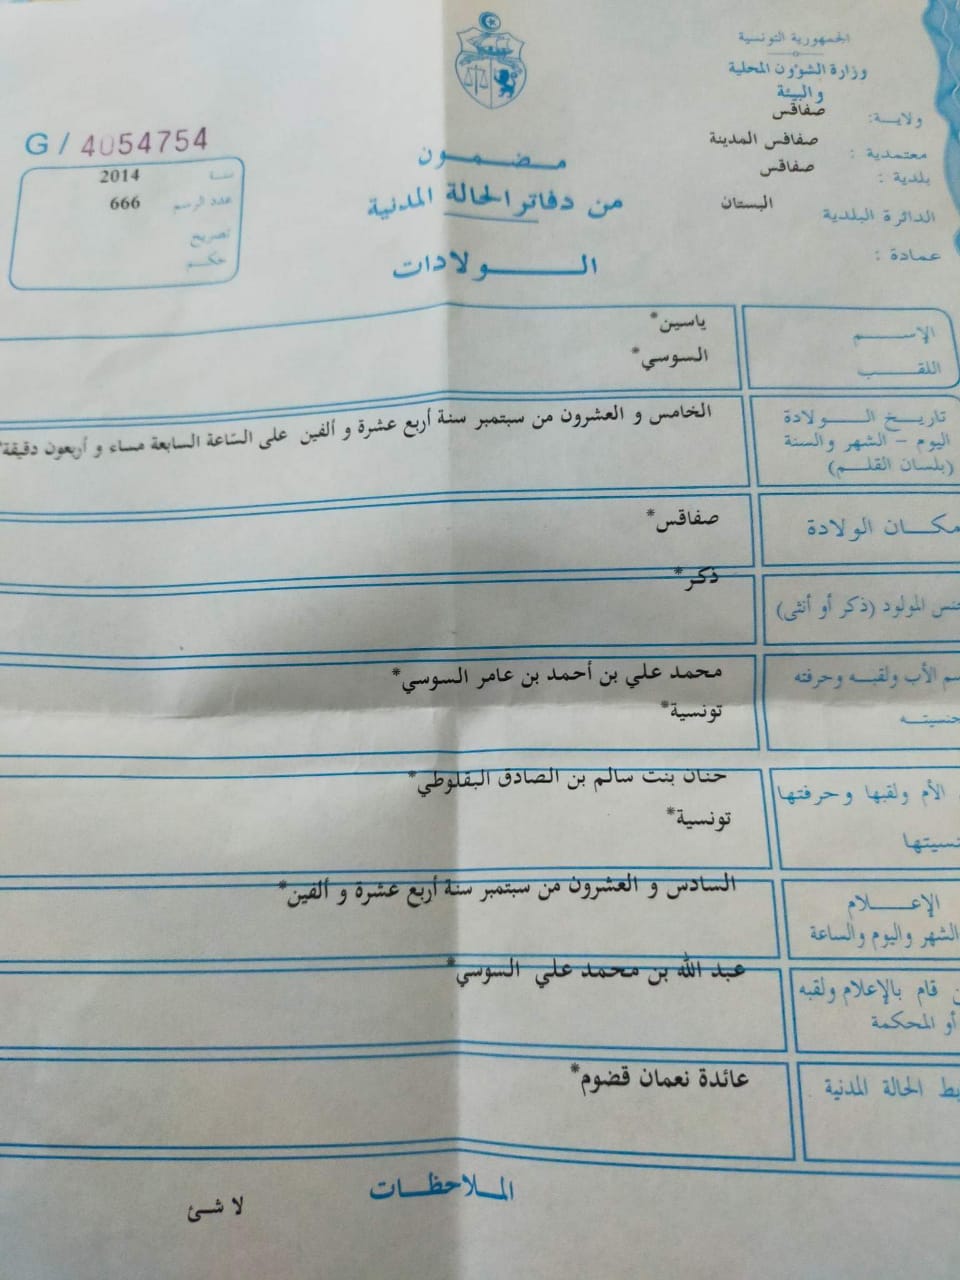 الجمهورية التونسية
وزارة الشؤون المحلية
والبيئة
ولاية: صفاقس
معتمدية : صفاقس المدينة
بلدية : صفاقس
الدائرة البلدية البستان
عمادة :
مضمون
من دفاتر الحالة المدنية
الولادات
G / 4054754
سنة 2014
عدد الرسم 666
تصريح
حكم
الإسم ياسين*
اللقب السوسي*
تاريخ الولادة
اليوم - الشهر والسنة
(بلسان القلم)
الخامس و العشرون من سبتمبر سنة أربع عشرة و ألفين على السّاعة السابعة مساء و أربعون دقيقة*
مكان الولادة صفاقس*
جنس المولود (ذكر أو أنثى) ذكر*
سم الأب ولقبه وحرفته محمد علي بن أحمد بن عامر السوسي*
جنسيته تونسية*
الأم ولقبها وحرفتها حنان بنت سالم بن الصادق البقلوطي*
نسيتها تونسية*
الإعلام
الشهر واليوم والساعة
السادس و العشرون من سبتمبر سنة أربع عشرة و ألفين*
ن قام بالإعلام ولقبه
أو المحكمة
عبد الله بن محمد علي السوسي*
بط الحالة المدنية عائدة نعمان قضوم*
الملاحظات
لا شئ